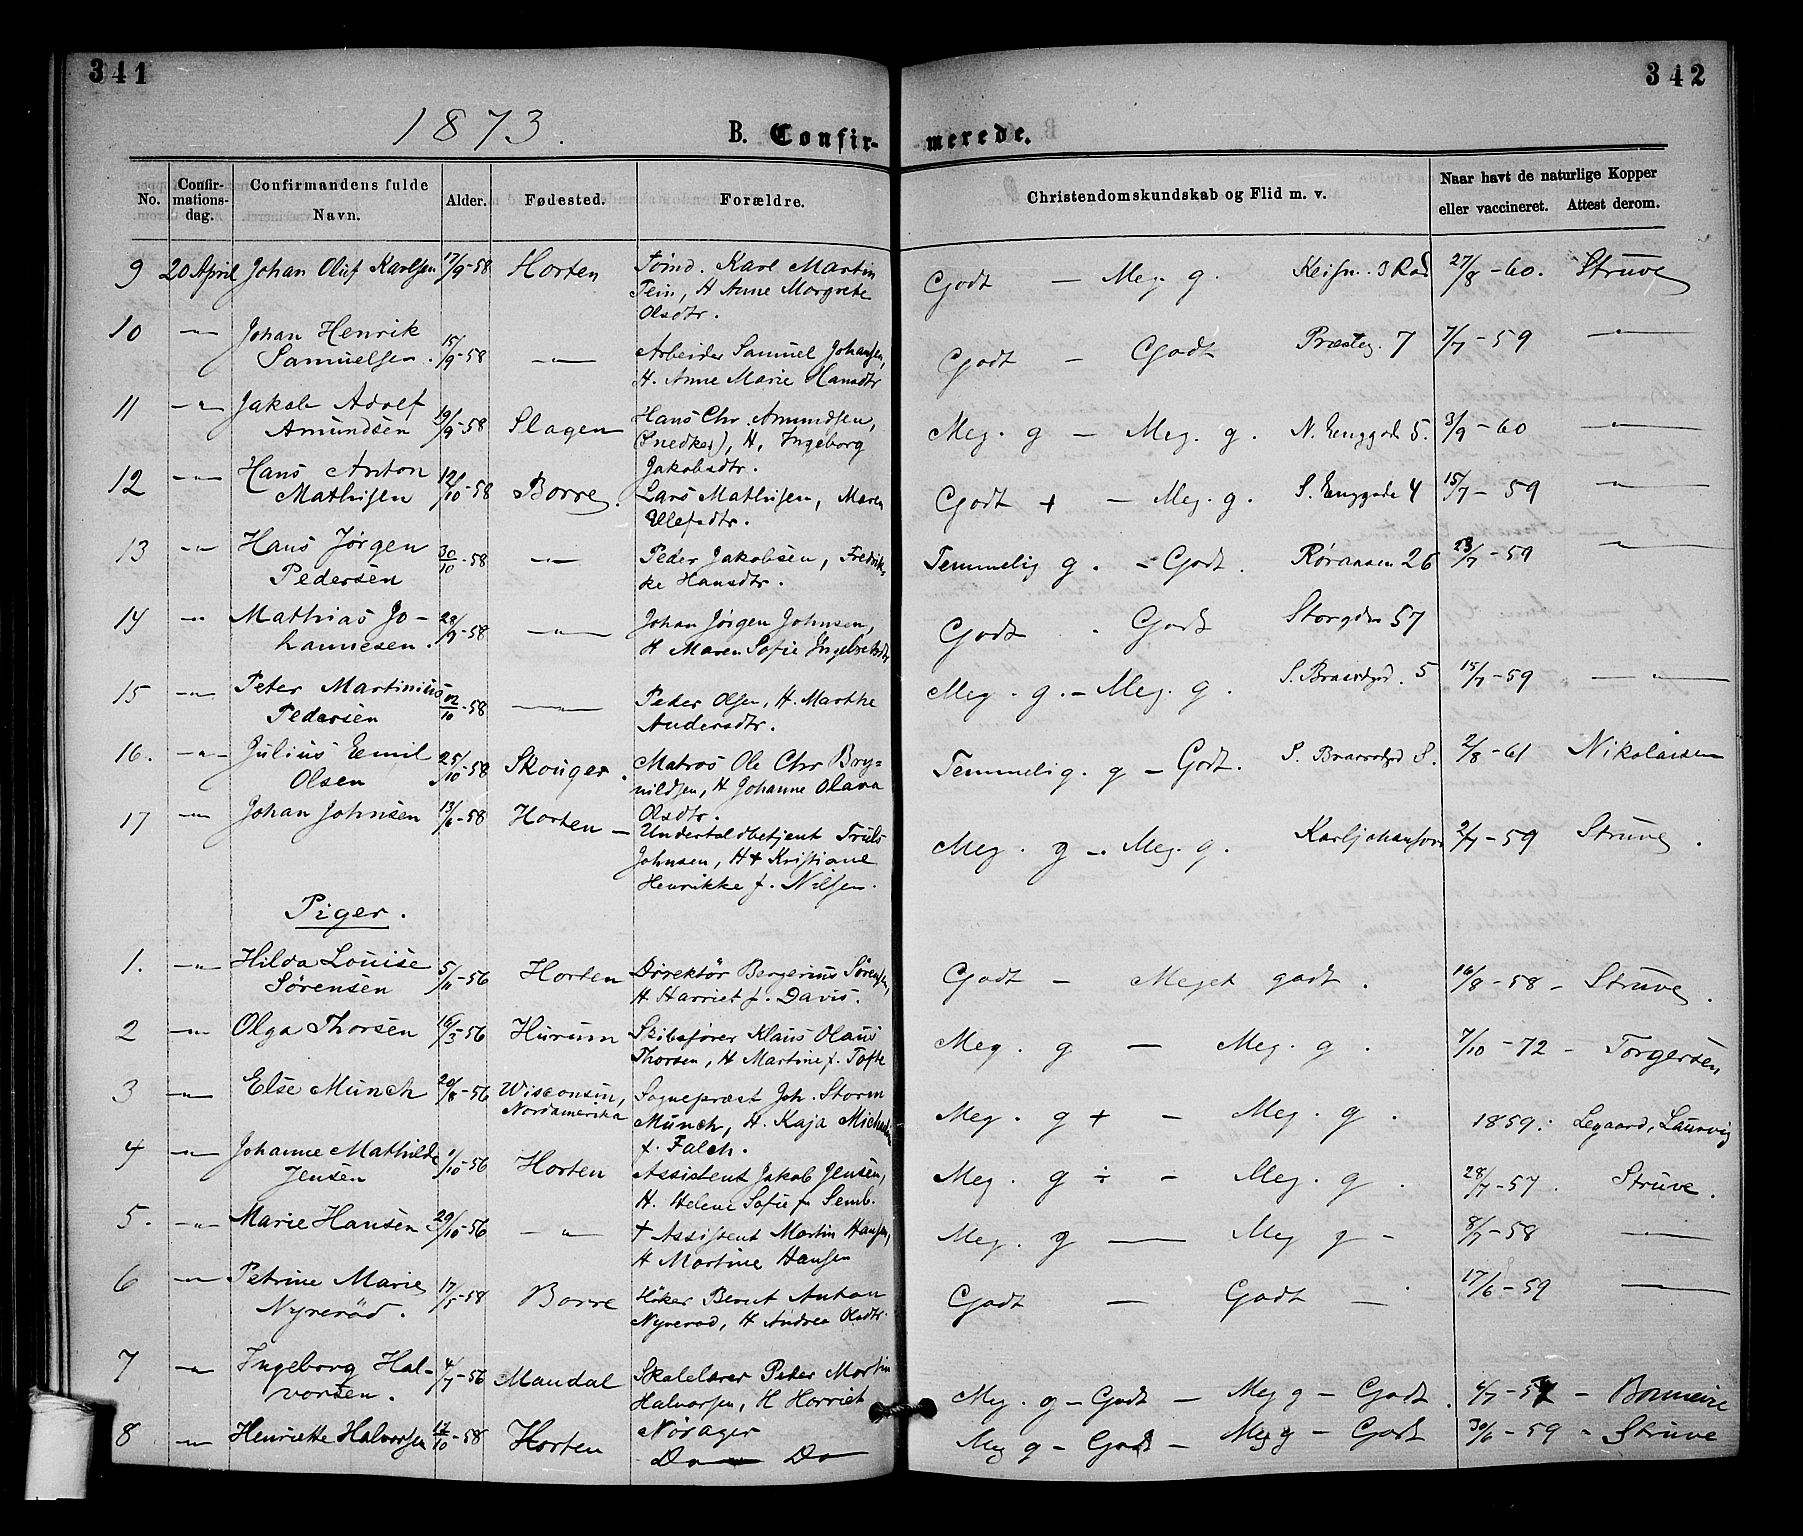 341
342
1873.
B. Confir-
merede.
No.
Confir-
mations-
dag.
Confirmandens fulde
Navn.
Alder.
Fødested.
Forældre.
Christendomskundskab og Flid m. v.
Naar havt de naturlige Kopper
eller vaccineret. Attest derom.
9 20 April Johan Oluf Karlsen 17/9-58 Horten Karl Martin
H Anne Margrete
Olsdtr.
Godt — Meg. g. 27/8-60. Struve
10 —"— Johan Henrik
Samuelsen. 15/9-58 —"— Arbeider Samuel Johansen,
H. Anne Marie Hansdtr
Godt — Godt Præsteg. 7 7/7-59 —"—
11 —"— Jakob Adolf
Amundsen 19/9-58 Slagen Hans Chr Amundsen,
(Snedker), H. Ingeborg
Jakobsdtr.
Meg. g — Meg. g. N. Enggade 5. 3/9-60 —"—
12 —"— Hans Anton
Mathisen 12/10-58 Borre. Lars Mathisen, Maren
Olefsdtr.
Godt + — Meg. g. S. Enggade 4 15/7-59 —"—
13 —"— Hans Jørgen
Pedersen 30/10-58 —"— Peder Jakobsen, Fredrik-
ke Hansdtr.
Temmelig g. — Godt. Røraasen 26 23/7-59 —"—
14 —"— Mathias Jo-
hannesen. 29/9-58 —"— Johan Jørgen Johnsen,
H Maren Sofie Ingebretsdtr
Godt . Godt Storgden 57
15 —"— Peter Martinius
Pedersen 02/10-58 —"— Peder Olsen, H. Marthe
Andersdtr.
Meg. g. — Meg. g. 5 15/7-59 —"—
16. —"— Julius Emil
Olsen 25/10-58 Skouger. Matros Ole Chr Bry=
nildsen, H Johanne Olava
Olsdtr.
Temmelig. g — Godt. 2/8-61 Nikolaisen
17 —"— Johan Johnsen 13/6-58 Horten — Undertoldbetjent Truls
Johnsen, H+ Kristiane
Henrikke f. Nilsen.
Meg. g —. Meg. g. Karljohansvern 2/7-59 Struve.
Piger.
1. —"— Hilda Louise
Sørensen 5/11-56 Horten Direktør Bergerius Sørensen,
H Harriet f. Davis.
Godt — Meget godt. 16/8-58 - Struve.
2 —"— Olga Thorsen 16/3-56 Hurum Skibsfører Klaus Olaus
Thorsen, H Martine f. Tofte
Meg. g — Meg. g. 7/10-72 - Torgersen
3 —"— Else Munch 20/8-56 Wisconsin,
Nordamerika Sognepræst Joh. Storm
Munch, H. Kaja
f. Falch.
Meg. g + — Meg. g. 1859. Legaard, Laurvig
4 —"— Johanne Mathilde
Jensen 1/10-56 Horten Assistent Jakob Jensen,
H. Helene Sofie f. Semb.
Meg. g ÷ — Meg. g. 28/7-57. Struve.
5. —"— Marie Hansen 29/10-56 —"— + Assistent Martin Hansen,
H Martine Hansen
Meg. g — Meg g - 8/7-58 —"—
6 —"— Petrine Marie
Nyrerød. 17/5-58 Borre Høker Bernt Anton
Nyrerød, H Andrea Olsdtr.
Godt — Godt — 17/6-59 —"—
7 —"— Ingeborg Hal-
vorsen. 4/7-56 Mandal Skolelærer Peter Martin
Halvorsen, H Harriet
Nørager
Meg. g — Godt — Meg g — Godt. 4/7-57 -
8 —"— Henriette Halvorsen 17/10-58 Horten Do — Do
Meg g — Godt — Meg g — Godt 30/6-59 - Struve